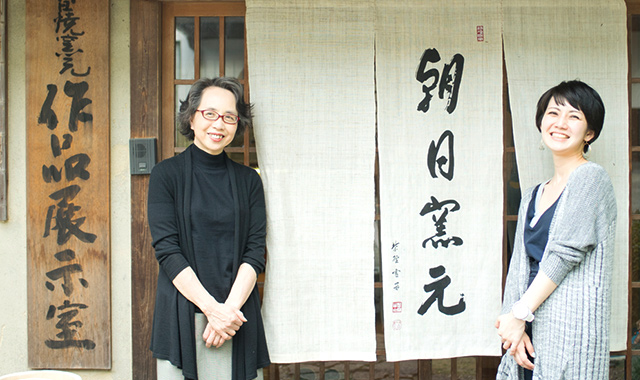 朝日窯元
日焼窯元
作品展示室